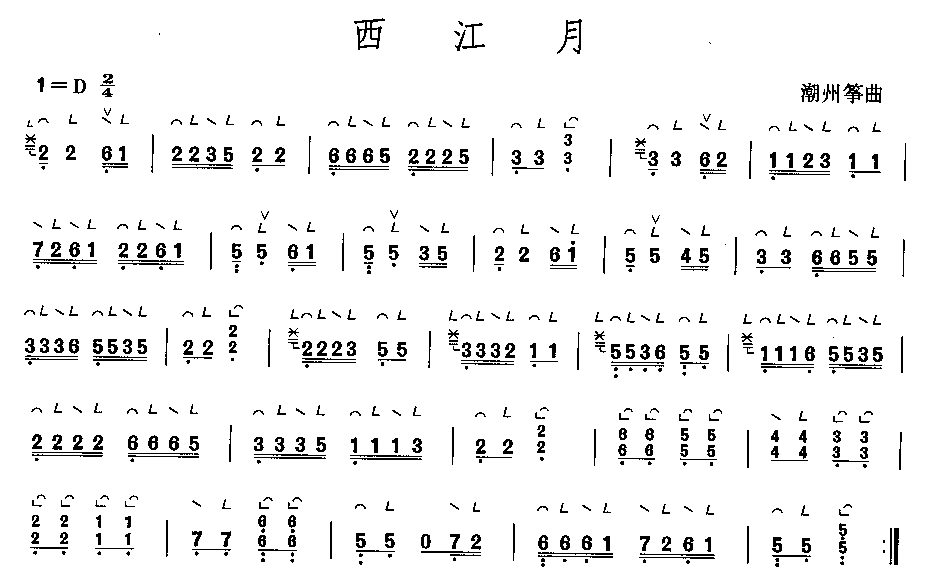 西 江 月
1=D 2/4
潮州筝曲
2 2 6 1 | 2 2 3 5 2 2 | 6 6 6 5 2 2 2 5 | 3 3 3 3 | 3 3 6 2 | 1 1 2 3 1 1 |
7 2 6 1 2 2 6 1 | 5 5 6 1 | 5 5 3 5 | 2 2 6 i | 5 5 4 5 | 3 3 6 6 5 5 |
3 3 3 6 5 5 3 5 | 2 2 2 2 | 2 2 2 3 5 5 | 3 3 3 2 1 1 | 5 5 3 6 5 5 | 1 1 1 6 5 5 3 5 |
2 2 2 2 6 6 6 5 | 3 3 3 5 1 1 1 3 | 2 2 2 2 | 6 6 5 5 6 6 5 5 | 4 4 3 3 4 4 3 3 |
2 2 1 1 2 2 1 1 | 7 7 6 6 6 6 | 5 5 0 7 2 | 6 6 6 1 7 2 6 1 | 5 5 5 5 :||